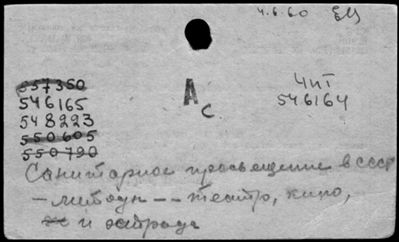 4.6.60
557350
546165
548223
550605
550790
А с
ЧИТ
546164
Санитарное просвещение в СССР
- методы -- театр, кино,
и эстрада